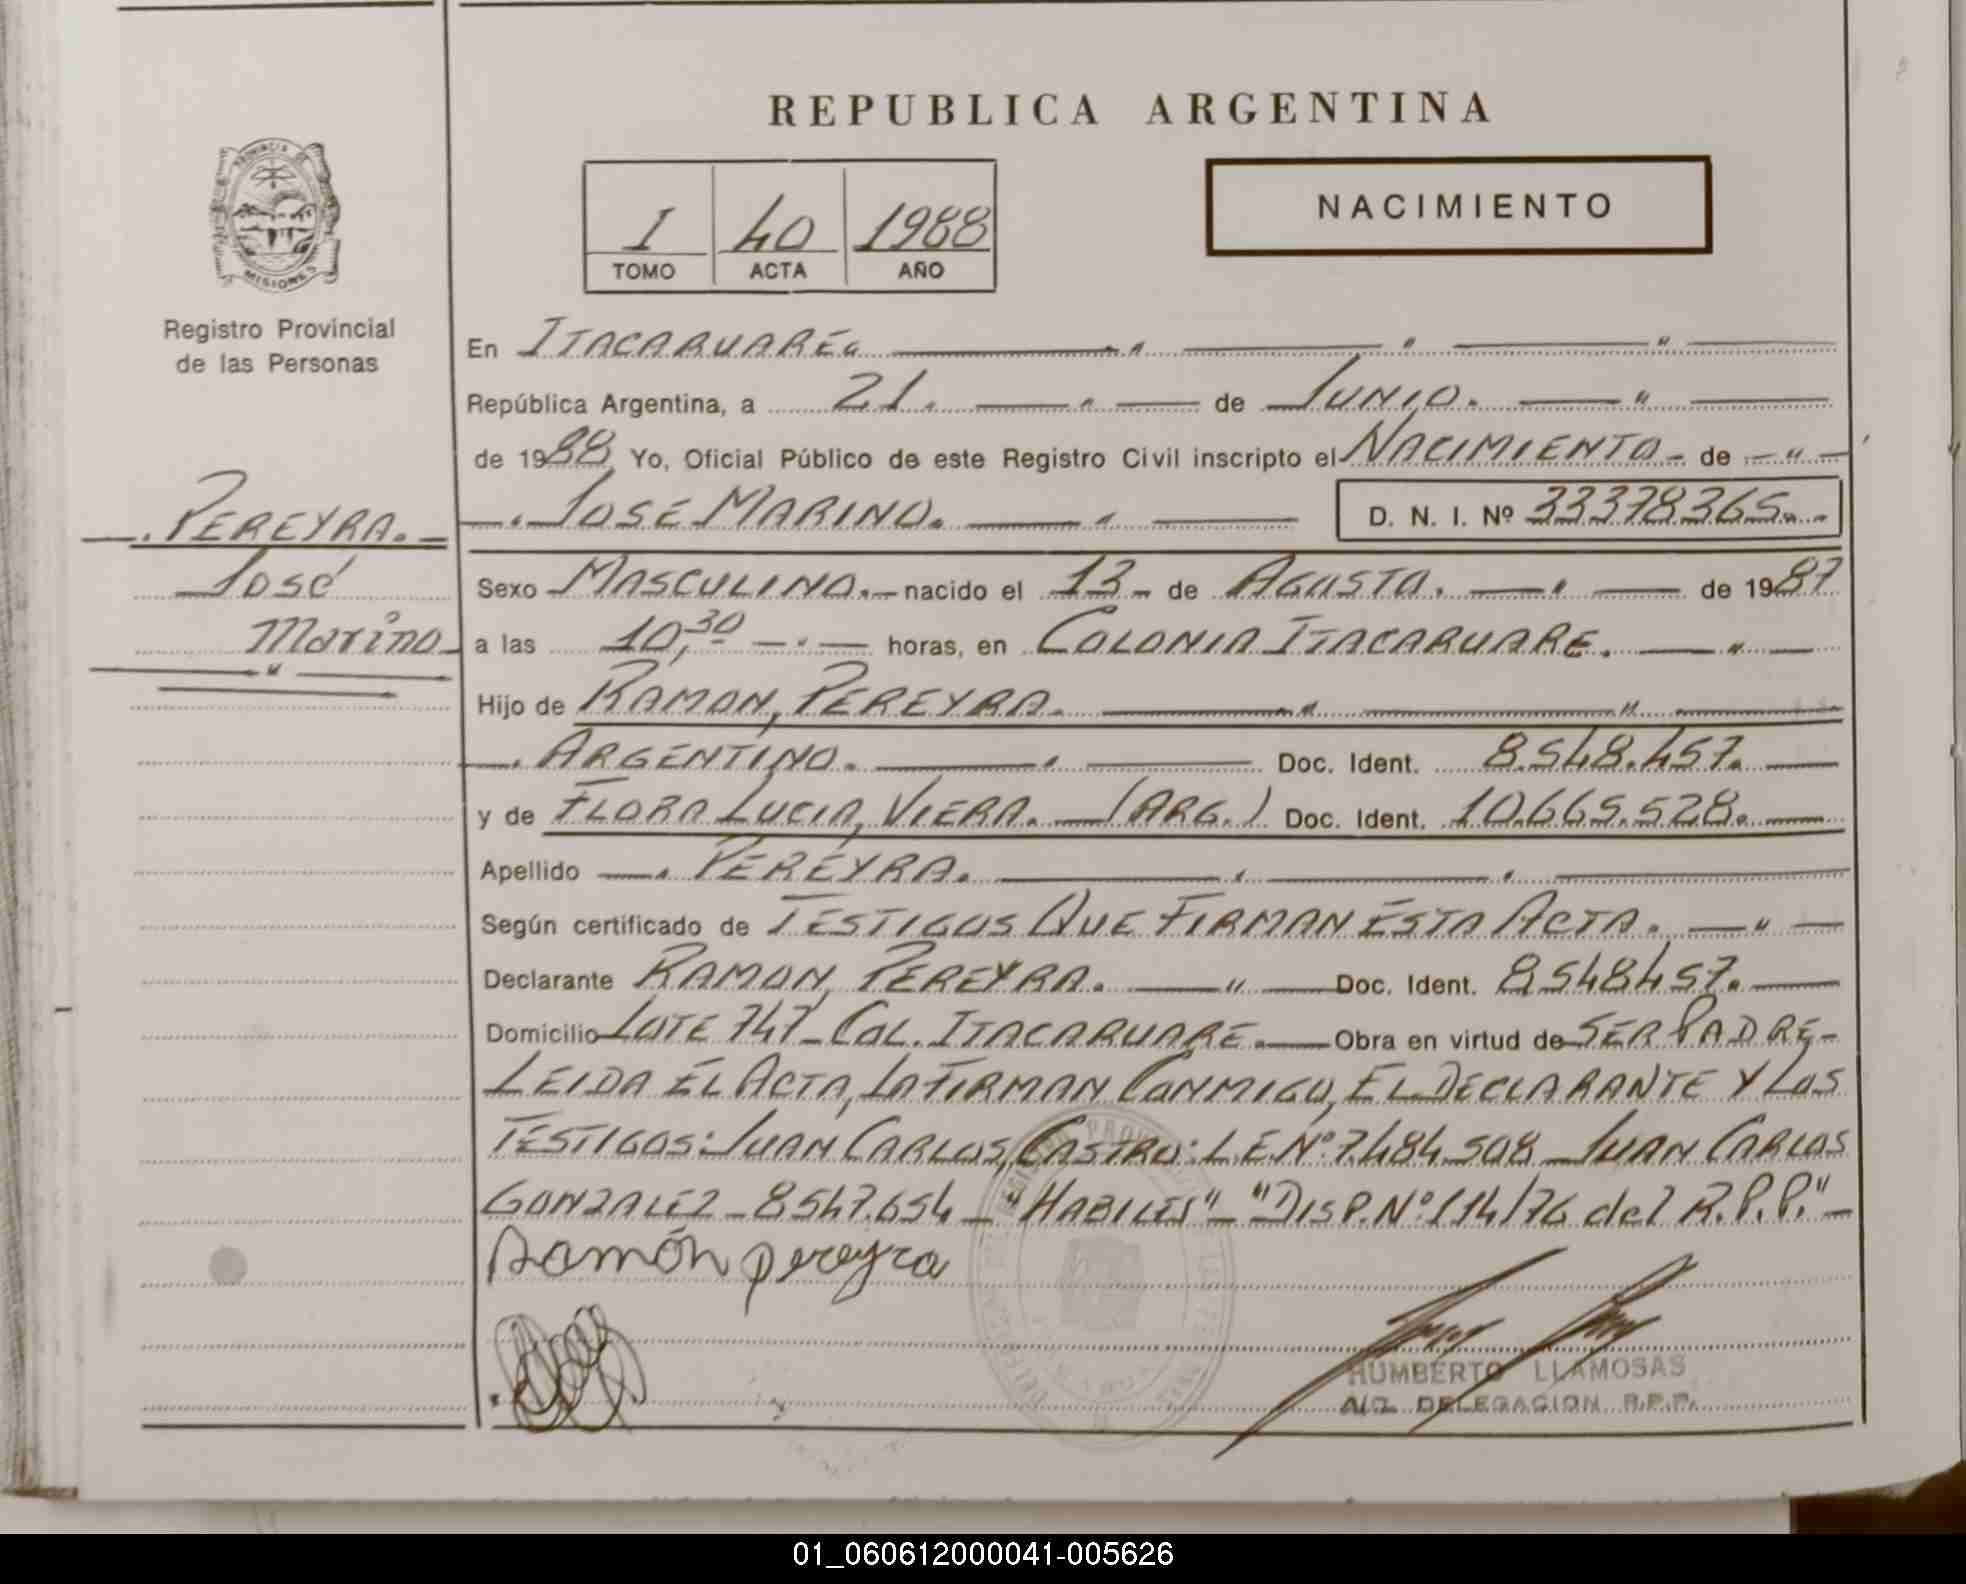 REPUBLICA ARGENTINA
PROVINCIA DE
MISIONES
Registro Provincial
de las Personas
I 40 1988
TOMO ACTA AÑO
NACIMIENTO
En ITACARUARÉ
República Argentina, a 21. de JUNIO.
de 1988 Yo, Oficial Público de este Registro Civil inscripto el NACIMIENTO - de
PEREYRA.
José
Marino
JOSÉ MARINO. D. N. I. Nº 33378365.
Sexo MASCULINO. nacido el 13 - de AGOSTO. de 1987
a las 10,30 horas, en COLONIA ITACARUARE.
Hijo de RAMON, PEREYRA.
ARGENTINO. Doc. Ident. 8.548.457.
y de FLORA LUCIA, VIERA. (ARG.) Doc. Ident. 10.665.528.
Apellido PEREYRA.
Según certificado de TESTIGOS QUE FIRMAN ESTA ACTA.
Declarante RAMON, PEREYRA. Doc. Ident. 8548457.
Domicilio LOTE 747 - COL. ITACARUARE. Obra en virtud de SER PADRE-
LEIDA EL ACTA, LA FIRMAN CONMIGO, EL DECLARANTE Y LOS
TESTIGOS: JUAN CARLOS, CASTRO: L.E.Nº 7.484.508 - JUAN CARLOS
GONZALEZ - 8547.654 - "HABILES" - "DISP. Nº 114/76 del R.P.P." -
Ramón pereyra
HUMBERTO LLAMOSAS
A/C. DELEGACION R.P.P.
01_060612000041-005626